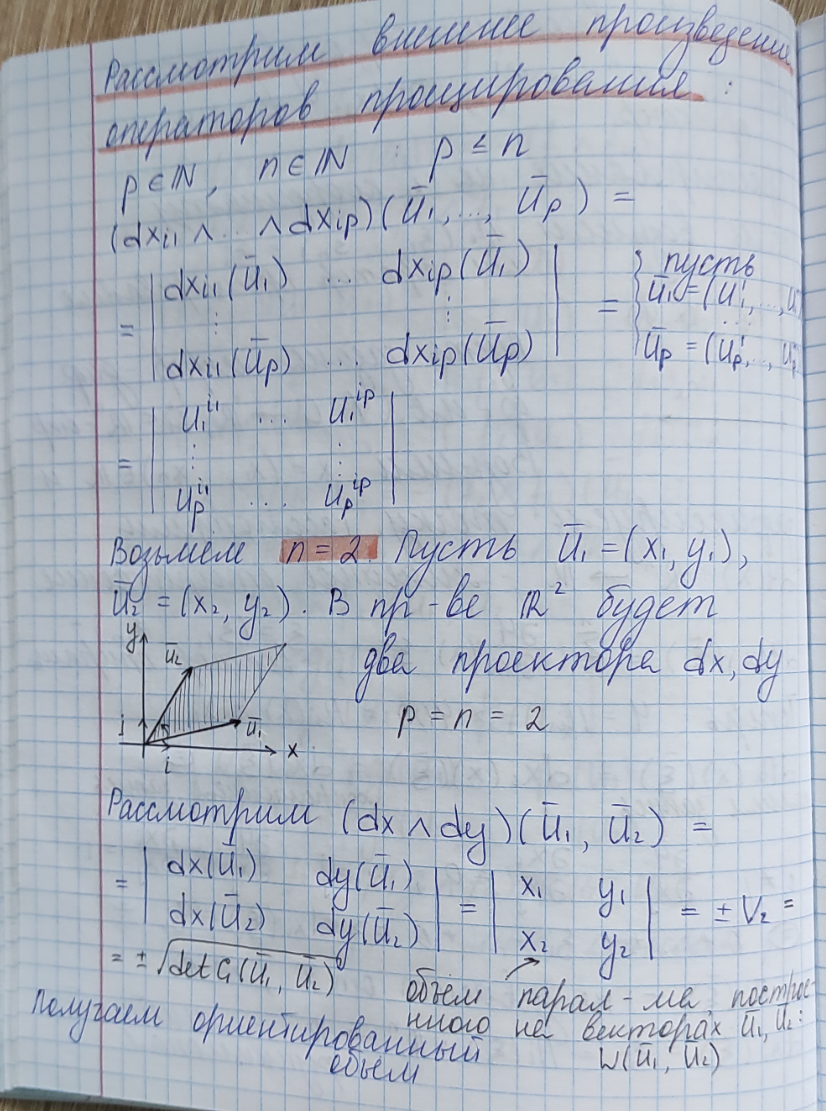 Рассмотрим внешнее произведение
операторов проецирования :
p ∈ ℕ, n ∈ ℕ : p ≤ n
(dx_{i1} ∧ ... ∧ dx_{ip})(ū₁, ..., ū_p) =
= | dx_{i1}(ū₁) ... dx_{ip}(ū₁) |
⋮ ⋮
| dx_{i1}(ū_p) ... dx_{ip}(ū_p) | = { пусть
ū₁ = (u₁¹, ..., u
...
ū_p = (u_p¹, ..., u_p
= | u₁^{i1} ... u₁^{ip} |
⋮ ⋮
| u_p^{i1} ... u_p^{ip} |
Возьмем n = 2 Пусть ū₁ = (x₁, y₁),
ū₂ = (x₂, y₂). В пр-ве ℝ² будет
два проектора dx, dy
p = n = 2
y
ū₂
j
ū₁
i
x
Рассмотрим (dx ∧ dy)(ū₁, ū₂) =
= | dx(ū₁) dy(ū₁) | = | x₁ y₁ | = ± V₂ =
| dx(ū₂) dy(ū₂) | | x₂ y₂ |
= ± √det G(ū₁, ū₂)
объём парал-ма построе-
нного на векторах ū₁, ū₂ :
W(ū₁, ū₂)
Получаем ориентированный
объём